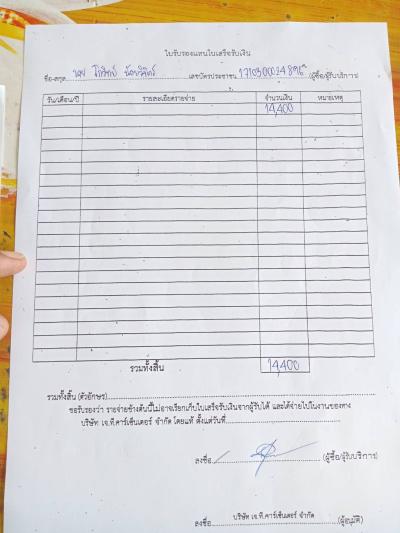 ใบรับรองแทนใบเสร็จรับเงิน
ชื่อ-สกุล นาย เลขบัตรประชาชน (ผู้ซื้อ/ผู้รับบริการ)
วัน/เดือน/ปี รายละเอียดรายจ่าย จำนวนเงิน หมายเหตุ
14,400
รวมทั้งสิ้น 14,400
รวมทั้งสิ้น (ตัวอักษร)
ขอรับรองว่า รายจ่ายข้างต้นนี้ไม่อาจเรียกเก็บใบเสร็จรับเงินจากผู้รับได้ และได้จ่ายไปในงานของทาง
บริษัท เจ.ที.คาร์เซ็นเตอร์ จำกัด โดยแท้ ตั้งแต่วันที่
ลงชื่อ (ผู้ซื้อ/ผู้รับบริการ)
บริษัท เจ.ที.คาร์เซ็นเตอร์ จำกัด
ลงชื่อ (ผู้อนุมัติ)